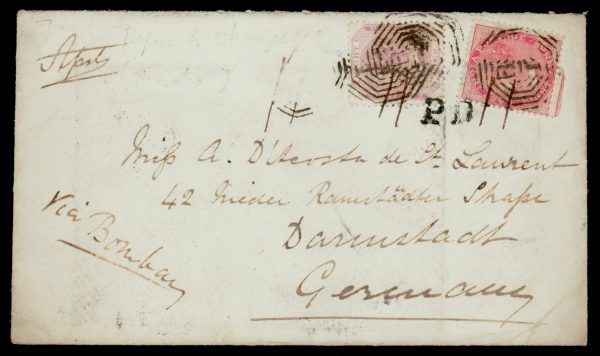 Miss A. D'Acosta de St. Laurent
42 Nieder Ramstädter Straße
Darmstadt
Germany
via Bombay
P D